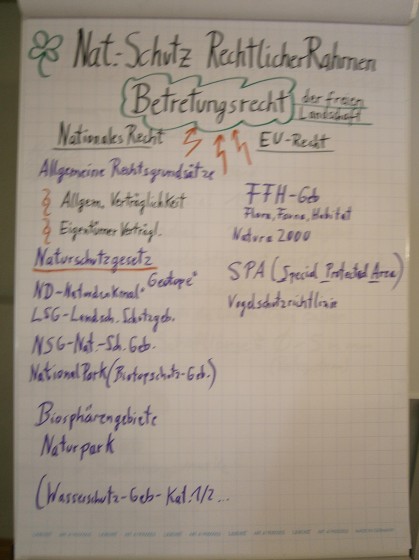 Nat.-Schutz Rechtlicher Rahmen
Betretungsrecht der freien
Landschaft
Nationales Recht
EU-Recht
Allgemeine Rechtsgrundsätze
Allgem. Verträglichkeit
Eigentümer Verträgl.
Naturschutzgesetz
ND-Naturdenkmal "Geotope"
LSG-Landsch. Schutzgeb.
NSG-Nat.-Sch. Geb.
NationalPark (Biotopschutz-Geb.)
Biosphärengebiete
Naturpark
(Wasserschutz-Geb-Kat. 1/2 ...
FFH-Geb
Flora, Fauna, Habitat
Natura 2000
SPA (Special Protected Area)
Vogelschutzrichtlinie